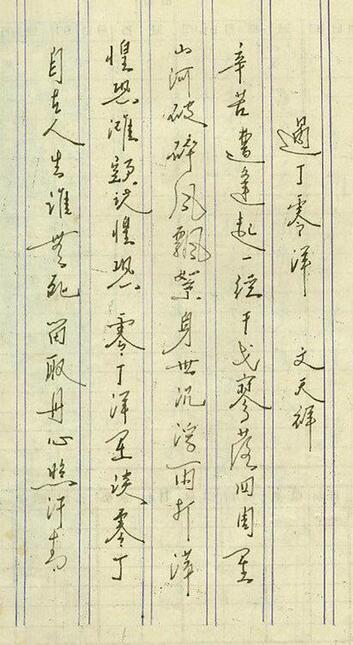 過丁零洋 文天祥
辛苦遭逢起一經干戈寥落四周星
山河破碎风飄絮身世沉浮雨打萍
惶恐灘頭說惶恐 零丁洋里談零丁
自古人生誰無死 留取丹心照汗青